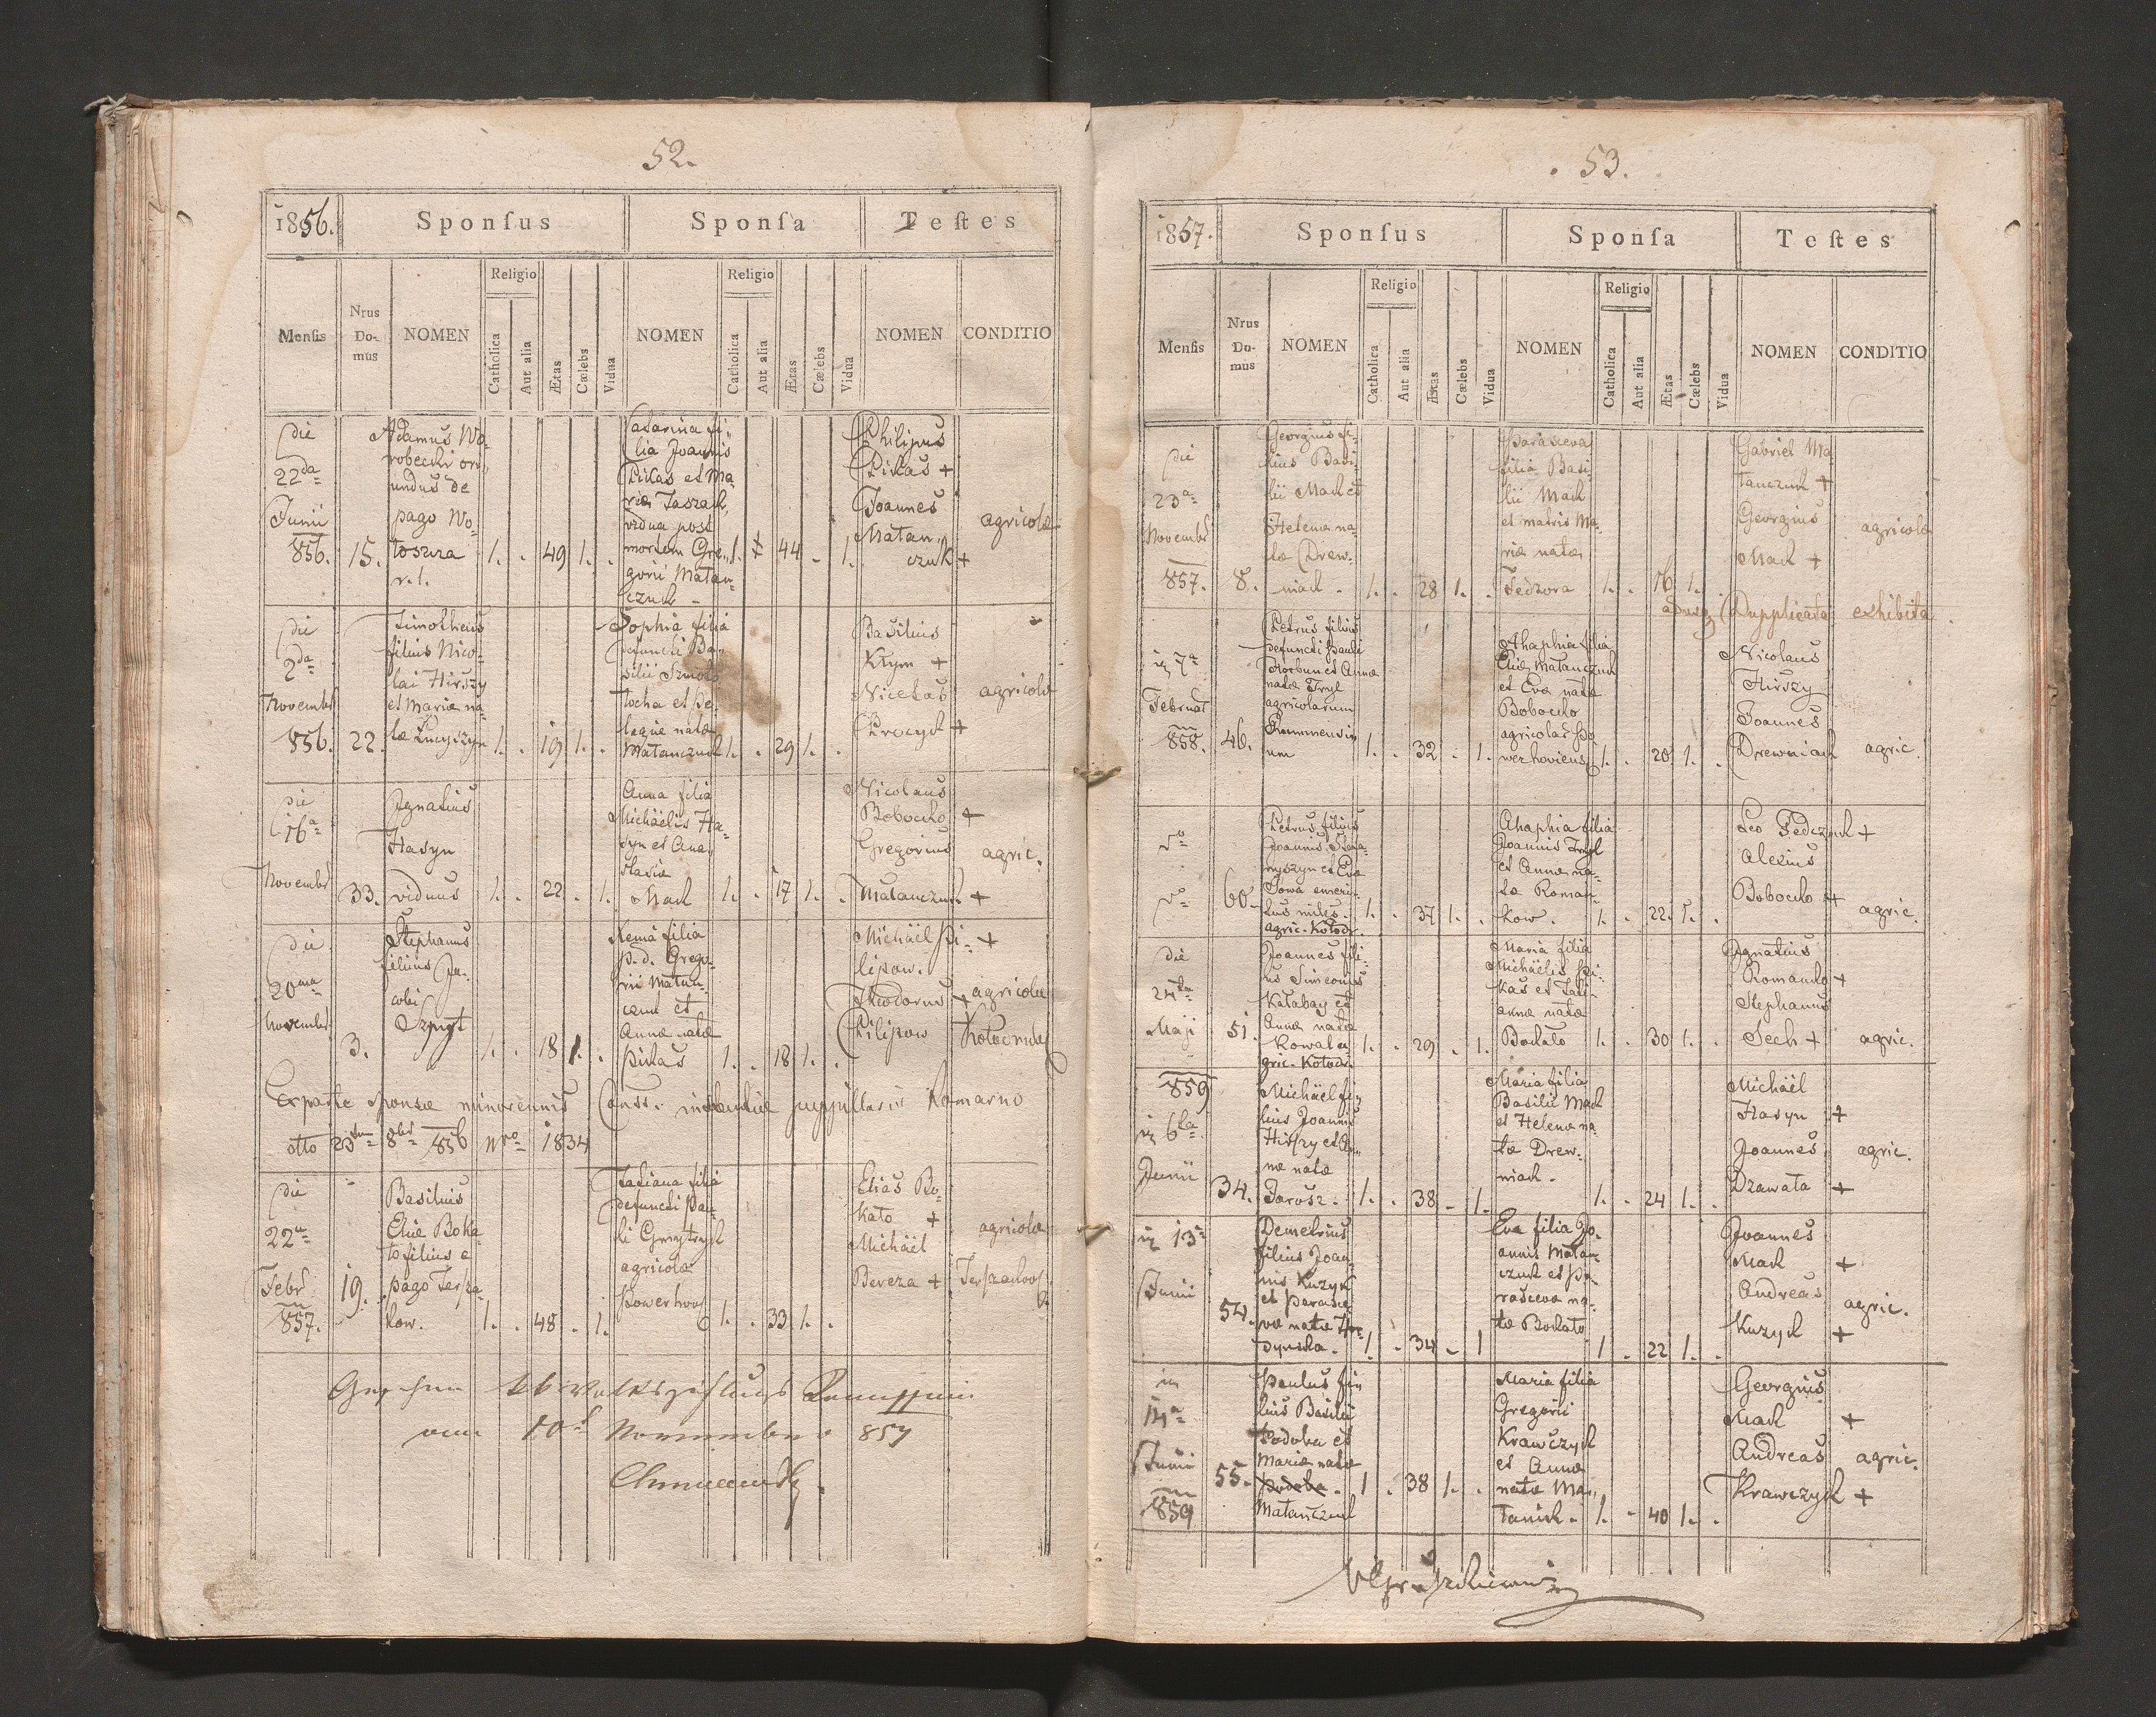 52.
1856. Sponſus Sponſa Teſtes
Menſis Nrus Domus NOMEN Religio Catholica Aut alia Ætas Cælebs Vidua NOMEN Religio Catholica Aut alia Ætas Cælebs Vidua NOMEN CONDITIO
die
22da
Junii
856.
15.
Adamus Wo-
robecki ori-
undus de
pago Wo-
toszcza
r. l.
1. . 49 1. .
Catarina fi-
lia Joannis
Pikas et Ma-
riæ Jaszach,
vidua post
mortem Gre-
gorii Matan-
czuk
1. 44 - 1.
Philipus
Pikas +
Joannes
Matan-
czuk +
agricolæ
die
2da
Novembr
856.
22.
Timotheus
filius Nico-
lai Hirszy
et Mariæ na-
tæ Lucyszyn
1. . 19 1. .
Sophia filia
defuncti Ba-
silii Smolo
tocha et Pe-
lagiæ natæ
Matanczuk
1. . 29 1. .
Basilius
Kłym +
Nicetas
Procyk +
agricolæ
die
16a
Novembr
33.
Ignatius
Hasyn
viduus
1. . 22 - 1.
Anna filia
Michäelis Ha-
syn et Ana-
stasiæ
Mach
1. . 17 1. .
Nicolaus
Bobocko +
Gregorius
Matanczuk +
agric.
die
20ma
Novembr
3.
Stephanus
filius Ja-
cobi
Szpyt
1. . 18 1. .
Xenia filia
p. d. Grego-
rii Matan-
czuk et
Annæ natæ
Pikas
1. . 18 1. .
Michäel Pi- +
lipow.
Theodorus +
Pilipow
agricolæ
Kołodrubs
Ex parte sponsæ minorennis Conss. instantiæ puppillaris Komarno
dtto 23tia 8bris 856 Nro 1834
die
22a
Febr
857.
19.
Basilius
Eliæ Boka-
to filius e
pago Tersza-
kow.
1. . 48 - 1.
Tatiana filia
defuncti Pau-
li
agricolæ
Powerhow
1. . 33 1. .
Elias Bo-
kato +
Michäel
Bereza +
agricolæ
Terszakow
Gesehen
10t Novembers 857
53.
1857. Sponſus Sponſa Teſtes
Menſis Nrus Domus NOMEN Religio Catholica Aut alia Ætas Cælebs Vidua NOMEN Religio Catholica Aut alia Ætas Cælebs Vidua NOMEN CONDITIO
die
23a
Novembr
857.
8.
Georgius fi-
lius Basi-
lii Mach et
Helenæ na-
tæ Drew-
niak.
1. . 28 1. .
Parasceva
filia Basi-
lii Mach
et matris Ma-
riæ natæ
Fedzora
1. . 16 1. .
Gabriel Ma-
tanczuk +
Georgius
Mach +
agricolæ
Dupplicata exhibita
7a
Februar
858.
46.
Petrus filius
defuncti Pauli
Horbun et Annæ
natæ Tryl
agricolarum
Rummensium
1. . 32 - 1.
Ahaphia filia
Eliæ Matanczuk
et Evæ natæ
Bobocko
agricolar Po
werhoviens
1. . 20 1. .
Nicolaus
Hirszy
Joannes
Drewniak
agric
do
do
60.
Petrus filius
Joannis
et Evæ
Sowa emeri-
tus miles.
agric. Kołodr.
1. . 37 1. .
Ahaphia filia
Joannis Tryl
et Annæ na-
tæ Roman-
kow.
1. . 22. 1. .
Leo Fedczuk +
Alexius
Bobocko +
agric.
die
24ta
Maji
51.
Joannes fili-
us Simeonis
Kałabay et
Annæ natæ
Kowal a-
gric. Kołodr.
1. . 29 - 1.
Maria filia
Michäelis Pi-
kas et Tati-
annæ natæ
Bochato
1. . 30 1. .
Ignatius
Romanko +
Stephanus
Sech +
agric.
859
6ta
Junii
34.
Michäel fi-
lius Joannis
Hirszy et An-
næ natæ
Jarosz.
1. . 38 - 1.
Maria filia
Basilii Mach
et Helenæ na-
tæ Drew-
niak.
1. . 24 1. .
Michäel
Hasyn +
Joannes
Dzawała +
agric.
13a
Junii
54.
Demetrius
filius Joan-
nis Kuzyk
et Parasce-
væ natæ Hor-
dynska.
1. . 34 - 1
Eva filia Jo-
annis Matan-
czuk et Pa-
rascevæ na-
tæ Bochato
1 . 22 1. .
Joannes
Mach +
Andreas
Kuzyk +
agric.
in
14a
Junii
859
55.
Paulus fi-
lius Basilii
Podoba et
Mariæ natæ
Podoba.
Matanczuk
1 . 38 1. .
Maria filia
Gregorii
Krawczyk
et Annæ
natæ Ma-
tanich.
1. - 40 1. .
Georgius
Mach +
Andreas
Krawczyk +
agric.